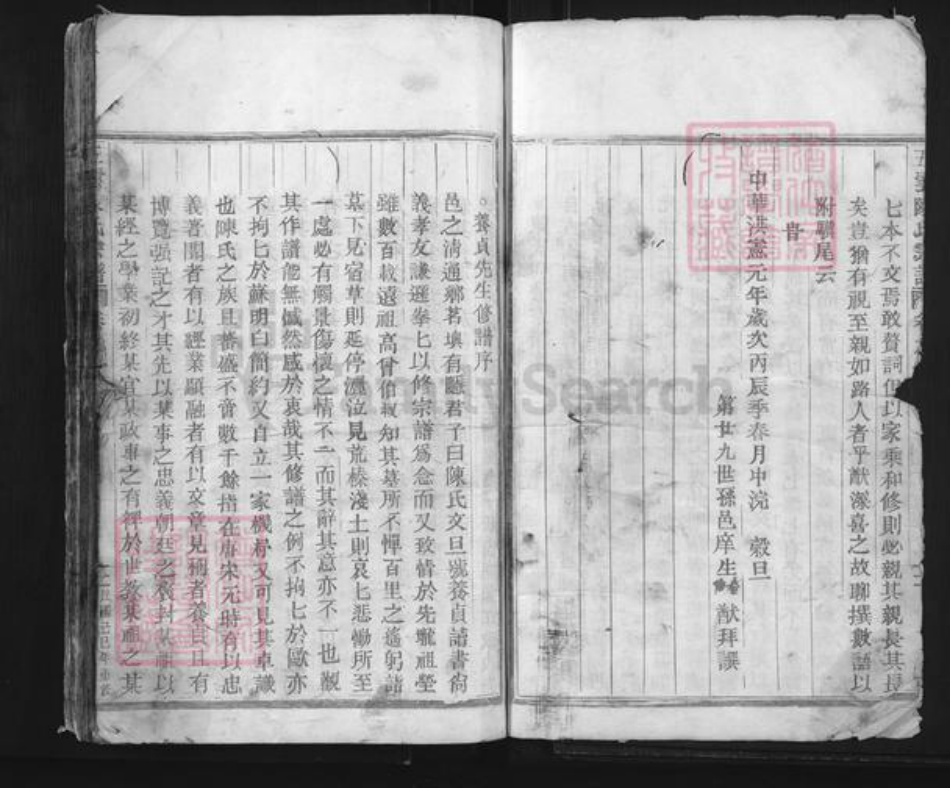 七本不文焉敢贅詞但以家乘和修則必親其親長其長
矣豈猶有視至親如路人者乎猷深喜之故聊撰數語以
附驥尾云
旹
中華洪憲元年歲次丙辰季春月中浣 穀旦
第廿九世孫邑庠生 猷拜譔
養貞先生修譜序
邑之清通鄉茗墺有隱君子曰陳氏文旦號養貞讀書尚
義孝友謙遜拳匕以修宗譜爲念而又致情於先壠祖塋
雖數百載遠祖高曾伯叔知其墓所不憚百里之遙躬詣
墓下見宿草則延停灑泣見荒榛淺土則哀匕悲慟所至
一處必有觸景傷懷之情不一而其辭其意亦不一也觀
其作譜能無慽然感於衷哉其修譜之例不拘匕於歐亦
不拘匕於蘇明白簡約又自立一家機杼又可見其卓識
也陳氏之族且蕃盛不啻數千餘指在唐宋元時有以忠
義著聞者有以經業顯融者有以文章見稱者養貞且有
博覽强記之才其先以某事之忠義朝廷之褒封某祖以
某經之學業初終某官某政事之有裨於世教某祖之某
FamilySearch